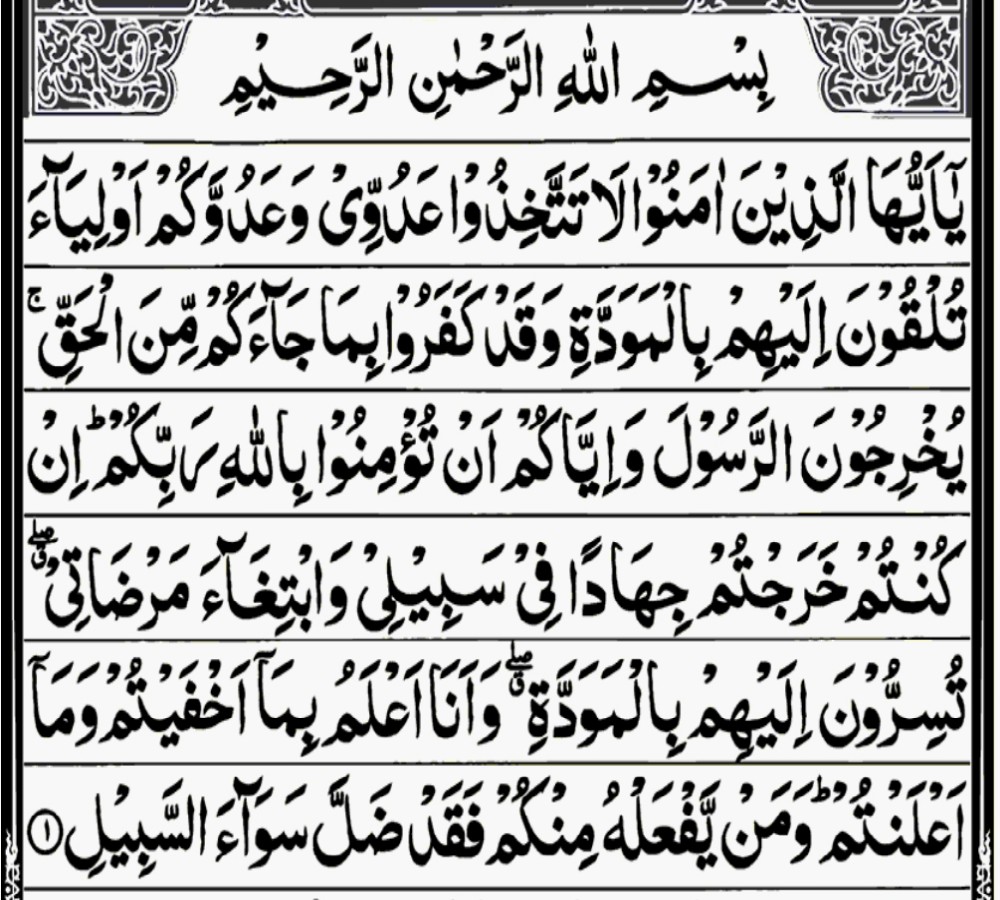 بِسْمِ اللهِ الرَّحْمٰنِ الرَّحِيْمِ
يٰٓاَيُّهَا الَّذِيْنَ اٰمَنُوْا لَا تَتَّخِذُوْا عَدُوِّىْ وَعَدُوَّكُمْ اَوْلِيَآءَ
تُلْقُوْنَ اِلَيْهِمْ بِالْمَوَدَّةِ وَقَدْ كَفَرُوْا بِمَا جَآءَكُمْ مِّنَ الْحَقِّ ۚ
يُخْرِجُوْنَ الرَّسُوْلَ وَاِيَّاكُمْ اَنْ تُؤْمِنُوْا بِاللهِ رَبِّكُمْ ؕ اِنْ
كُنْتُمْ خَرَجْتُمْ جِهَادًا فِىْ سَبِيْلِىْ وَابْتِغَآءَ مَرْضَاتِىْ ۖق
تُسِرُّوْنَ اِلَيْهِمْ بِالْمَوَدَّةِ ۖق وَاَنَا اَعْلَمُ بِمَآ اَخْفَيْتُمْ وَمَآ
اَعْلَنْتُمْ ؕ وَمَنْ يَّفْعَلْهُ مِنْكُمْ فَقَدْ ضَلَّ سَوَآءَ السَّبِيْلِ ۝۱